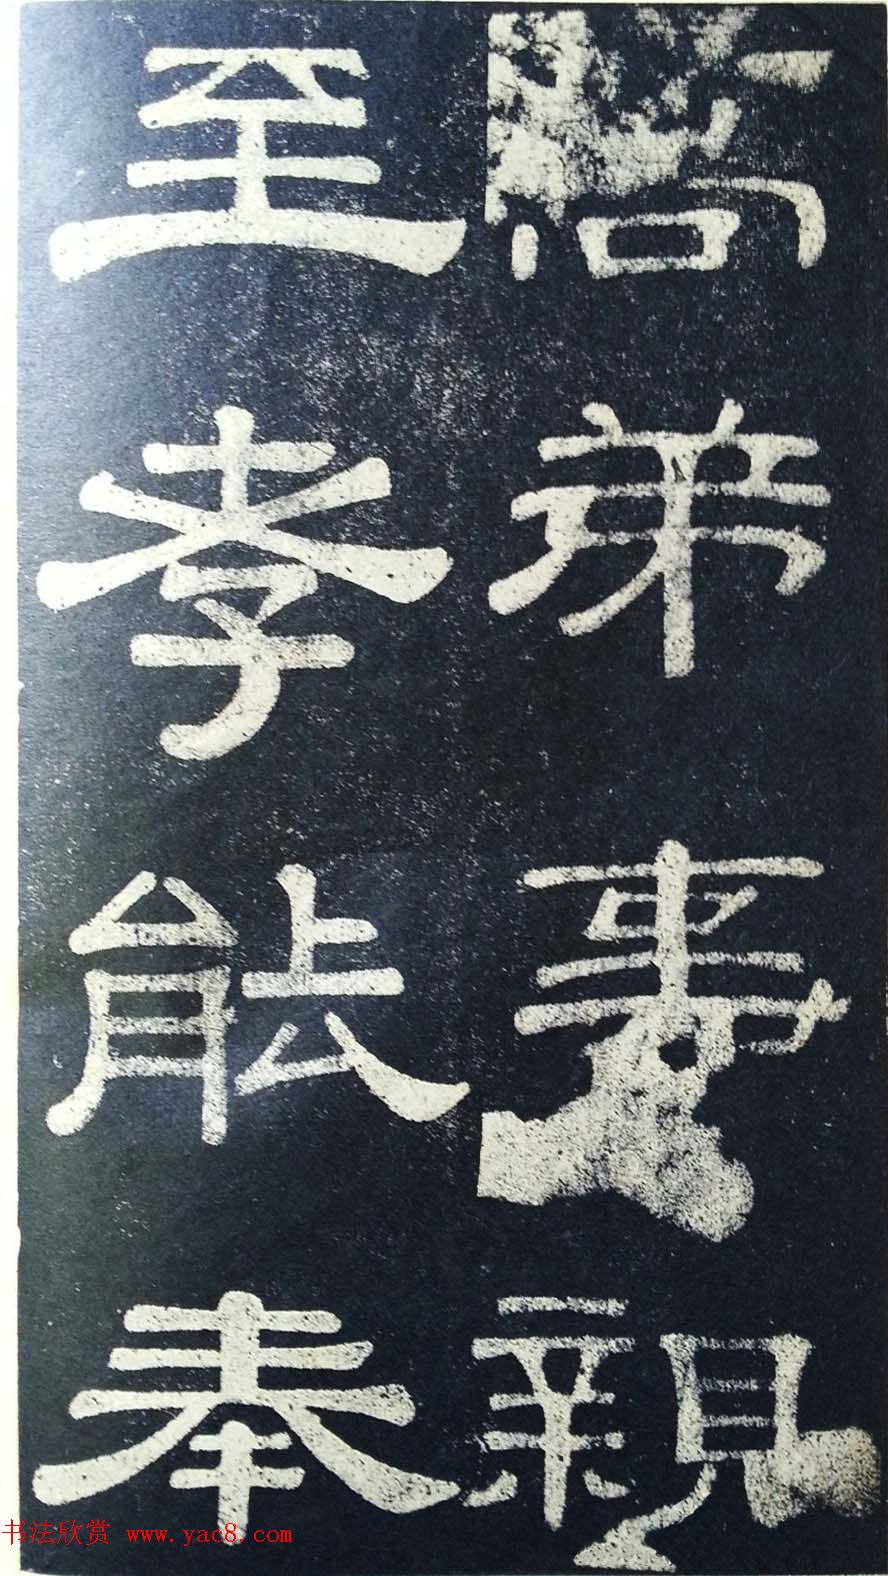 高弟事親
至孝能奉
书法欣赏 www.yac8.com